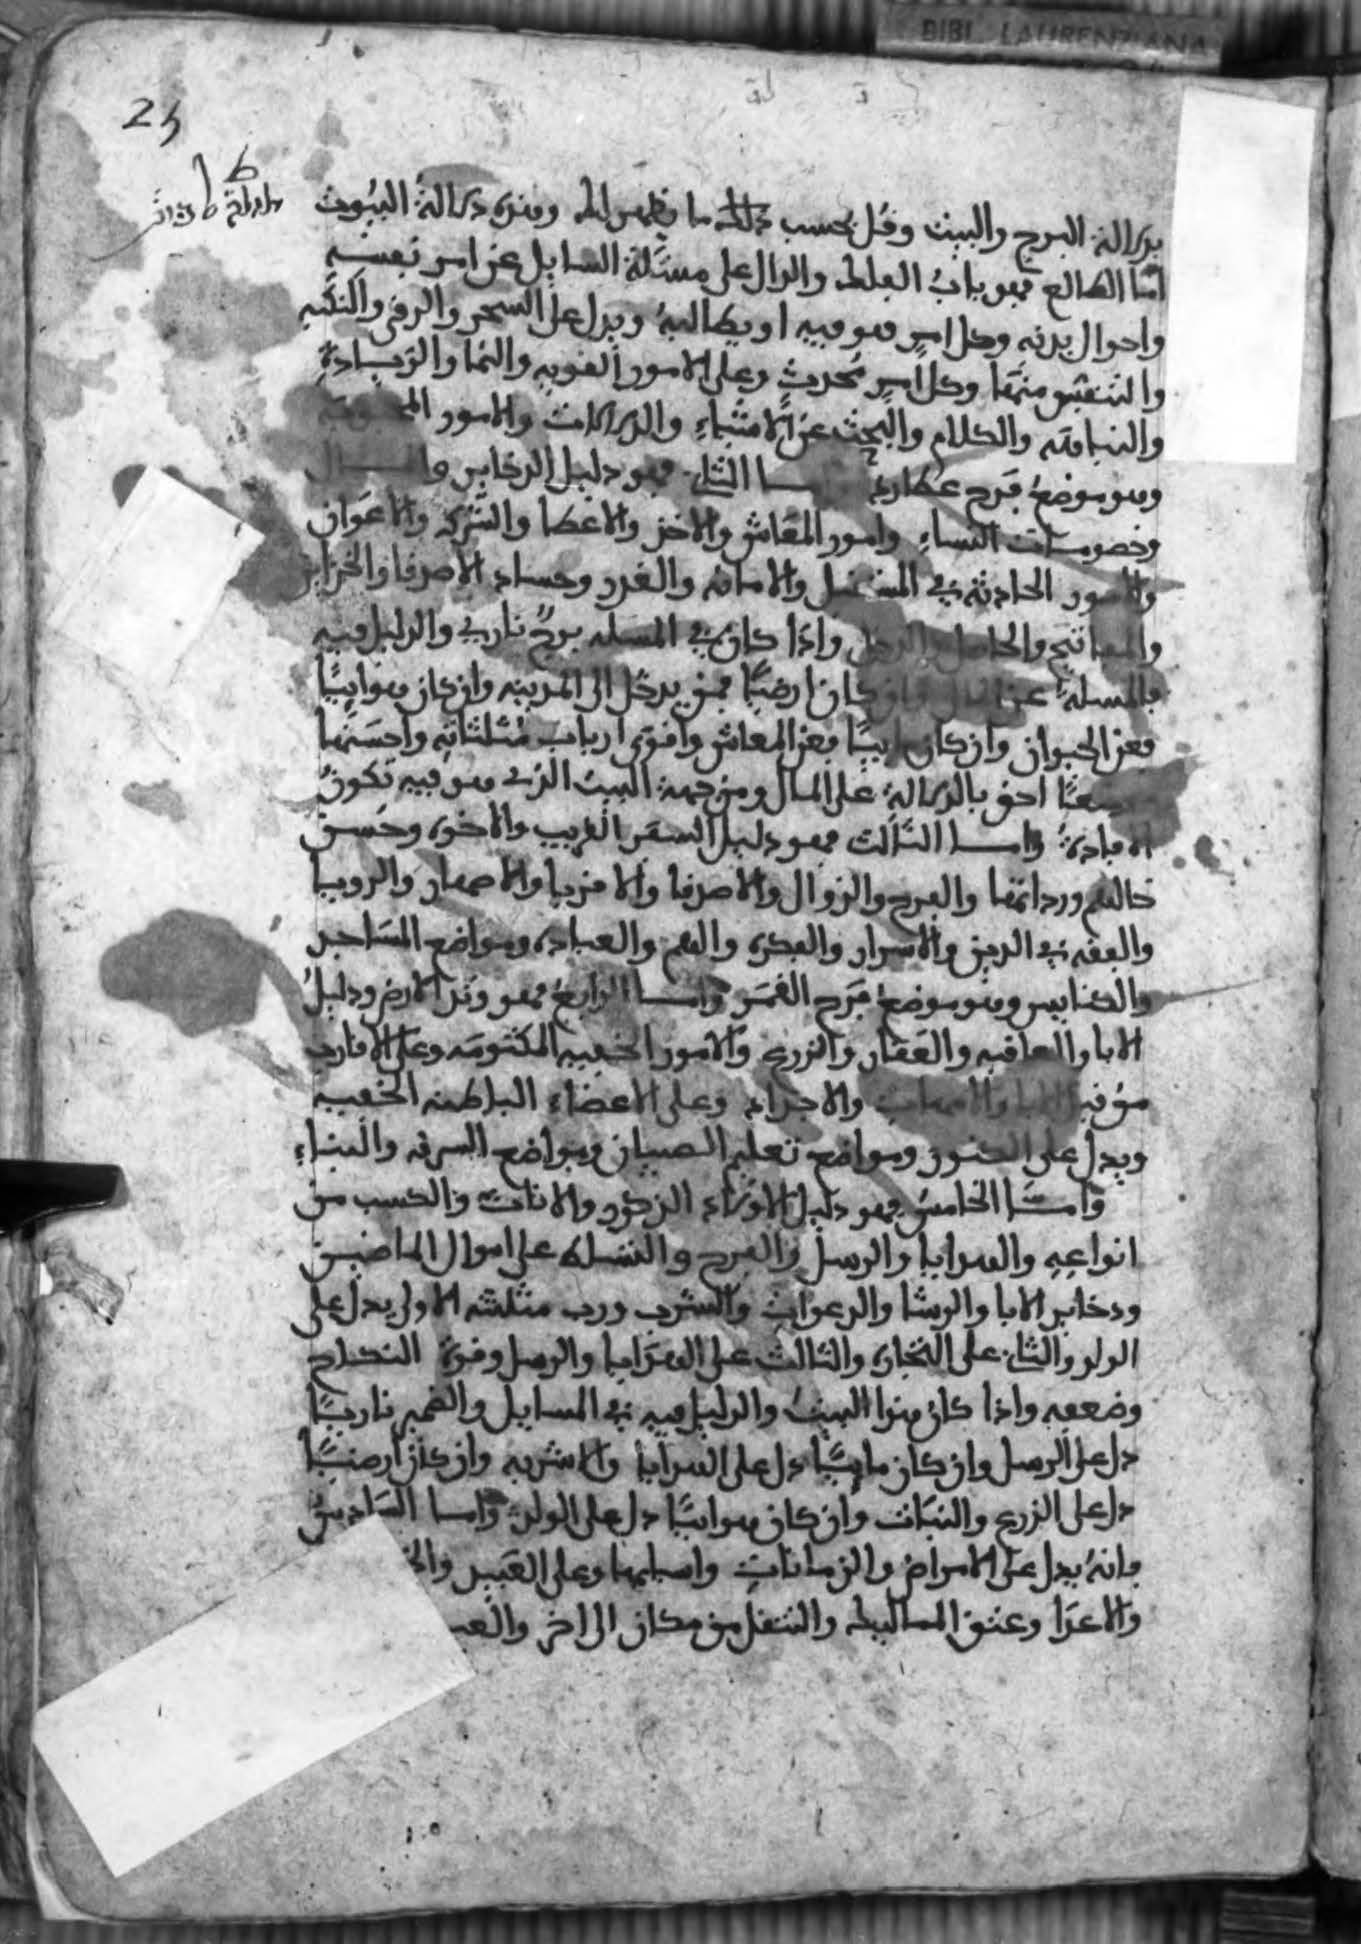 BIBL. LAURENZIANA
بدلالة البرج والبيت وقل بحسب ذلك ما يظهر لك وهذه دلالة البيوت
اما الطالع فهو باب الفلك والدال على مسئلة السايل عن امر نفسه
واحوال بدنه وكل امر هو فيه او يطالبه ويدل على السحر والرقى
والتنفس منها وكل امر محدث وعلى الامور القوية والنما والزيادة
والنباهة والكلام والبحث عن الاشياء والدلالات والامور
وهو موضع فرح عطارد واما الثاني فهو دليل الذخاير
وخصومات النساء وامور المعاش والاخذ والاعطا والشركه والاعوان
والامور الحادثة في المستقبل والامانه والغدر وحساب الاصدقا والخزاين
والمفاتيح والحامل واذا كان في المسله برج ناري والدليل فيه
فالمسلة عن كان ارضيا فمن يدخل الى المدينه وان كان هواييا
فعن الحيوان وان كان ماييا فعن المعاش واقوى ارباب مثلثاته واحسنها
موضعا احق بالدلالة على المال ومن جهة البيت الذي هو فيه تكون
الافادة واما الثالث فهو دليل السفر القريب والاخوه وحسن
حالهم ورداتها والفرح والزوال والاصدقا والاقربا والاصهار والرويا
والفقه في الدين والاسرار والفكره والهم والعباده ومواضع المساجد
والكنايس وهو موضع فرح القمر واما الرابع فهو وتد الارض ودليل
الابا والعاقبه والعقار والزرع والامور الخفيه المكتومه وعلى الاقارب
من قبل الابا والامهات والاجداد وعلى الاعضاء الباطنه الخفيه
ويدل على الكنوز ومواضع تعليم الصبيان ومواضع السرقه والبناء
واما الخامس فهو دليل الاولاد الذكور والاناث والكسب من
انواعه والهدايا والرسل والفرح والنسله على اموال الماضيين
وذخاير الابا والرشا والدعوات والشرب ورب مثلثته الاول يدل على
الولد والثاني على التجارة والثالث على الهدايا والرسل وقوة النكاح
وضعفه واذا كان هذا البيت والدليل فيه في المسايل والضمير ناريا
دل على الرسل وان كان ماييا دل على الهدايا والاشربه وان كان ارضيا
دل على الزرع والنبات وان كان هواييا دل على الولد واما السادس
فانه يدل على الامراض والزمانات واسبابها وعلى العبيد
والاعدا وعتق المماليك والتنقل من مكان الى اخر